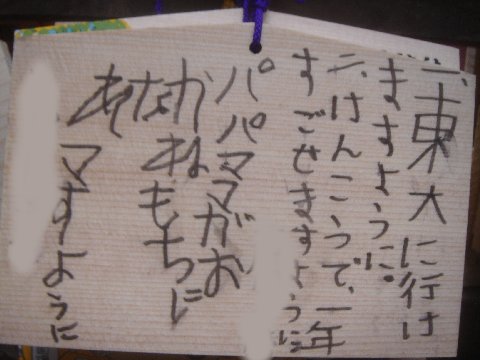 一、東大に行け
ますように。
二、けんこうで、一年
すごせますように
パパママがお
かねもちに
マすように